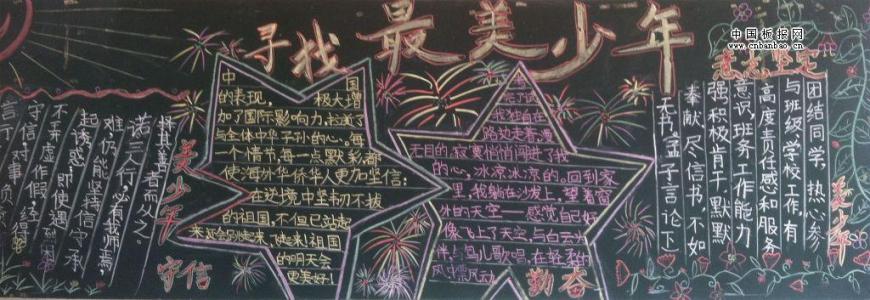 寻找最美少年
中国板报网
www.cnbanbao.cn
言行
守信，对事负
不弄虚作假，经得
起诱惑，即使遇到困
难仍能坚持信守承
诺 三人行，必有我师焉，
择其善者而从之。
美少年
守信
中国
的表现， 极大增
加了国际影响力，拉近了
与全体中华子孙的心。每
一个情节，每一点默彩都
使海外华侨华人更加坚信：
在逆境中坚韧不拔
的祖国，不但已站起
的明天会
更美好！
我独自在
路边走着，漫
无目的，寂寞悄悄闯进了我
的心，冰凉冰凉的。回到家
里，我躺在沙发上，望着窗
外的天空——感觉自己好
像飞上了天空，与白云为
伴，与鸟儿歌唱，在轻柔的
勤奋
意志坚定
团结同学，热心参
与班级、学校工作，有
高度责任感和服务
意识，班务工作能力
强积极肯干，默默
奉献 尽信书，不如
无书。孟子言论下
美少年